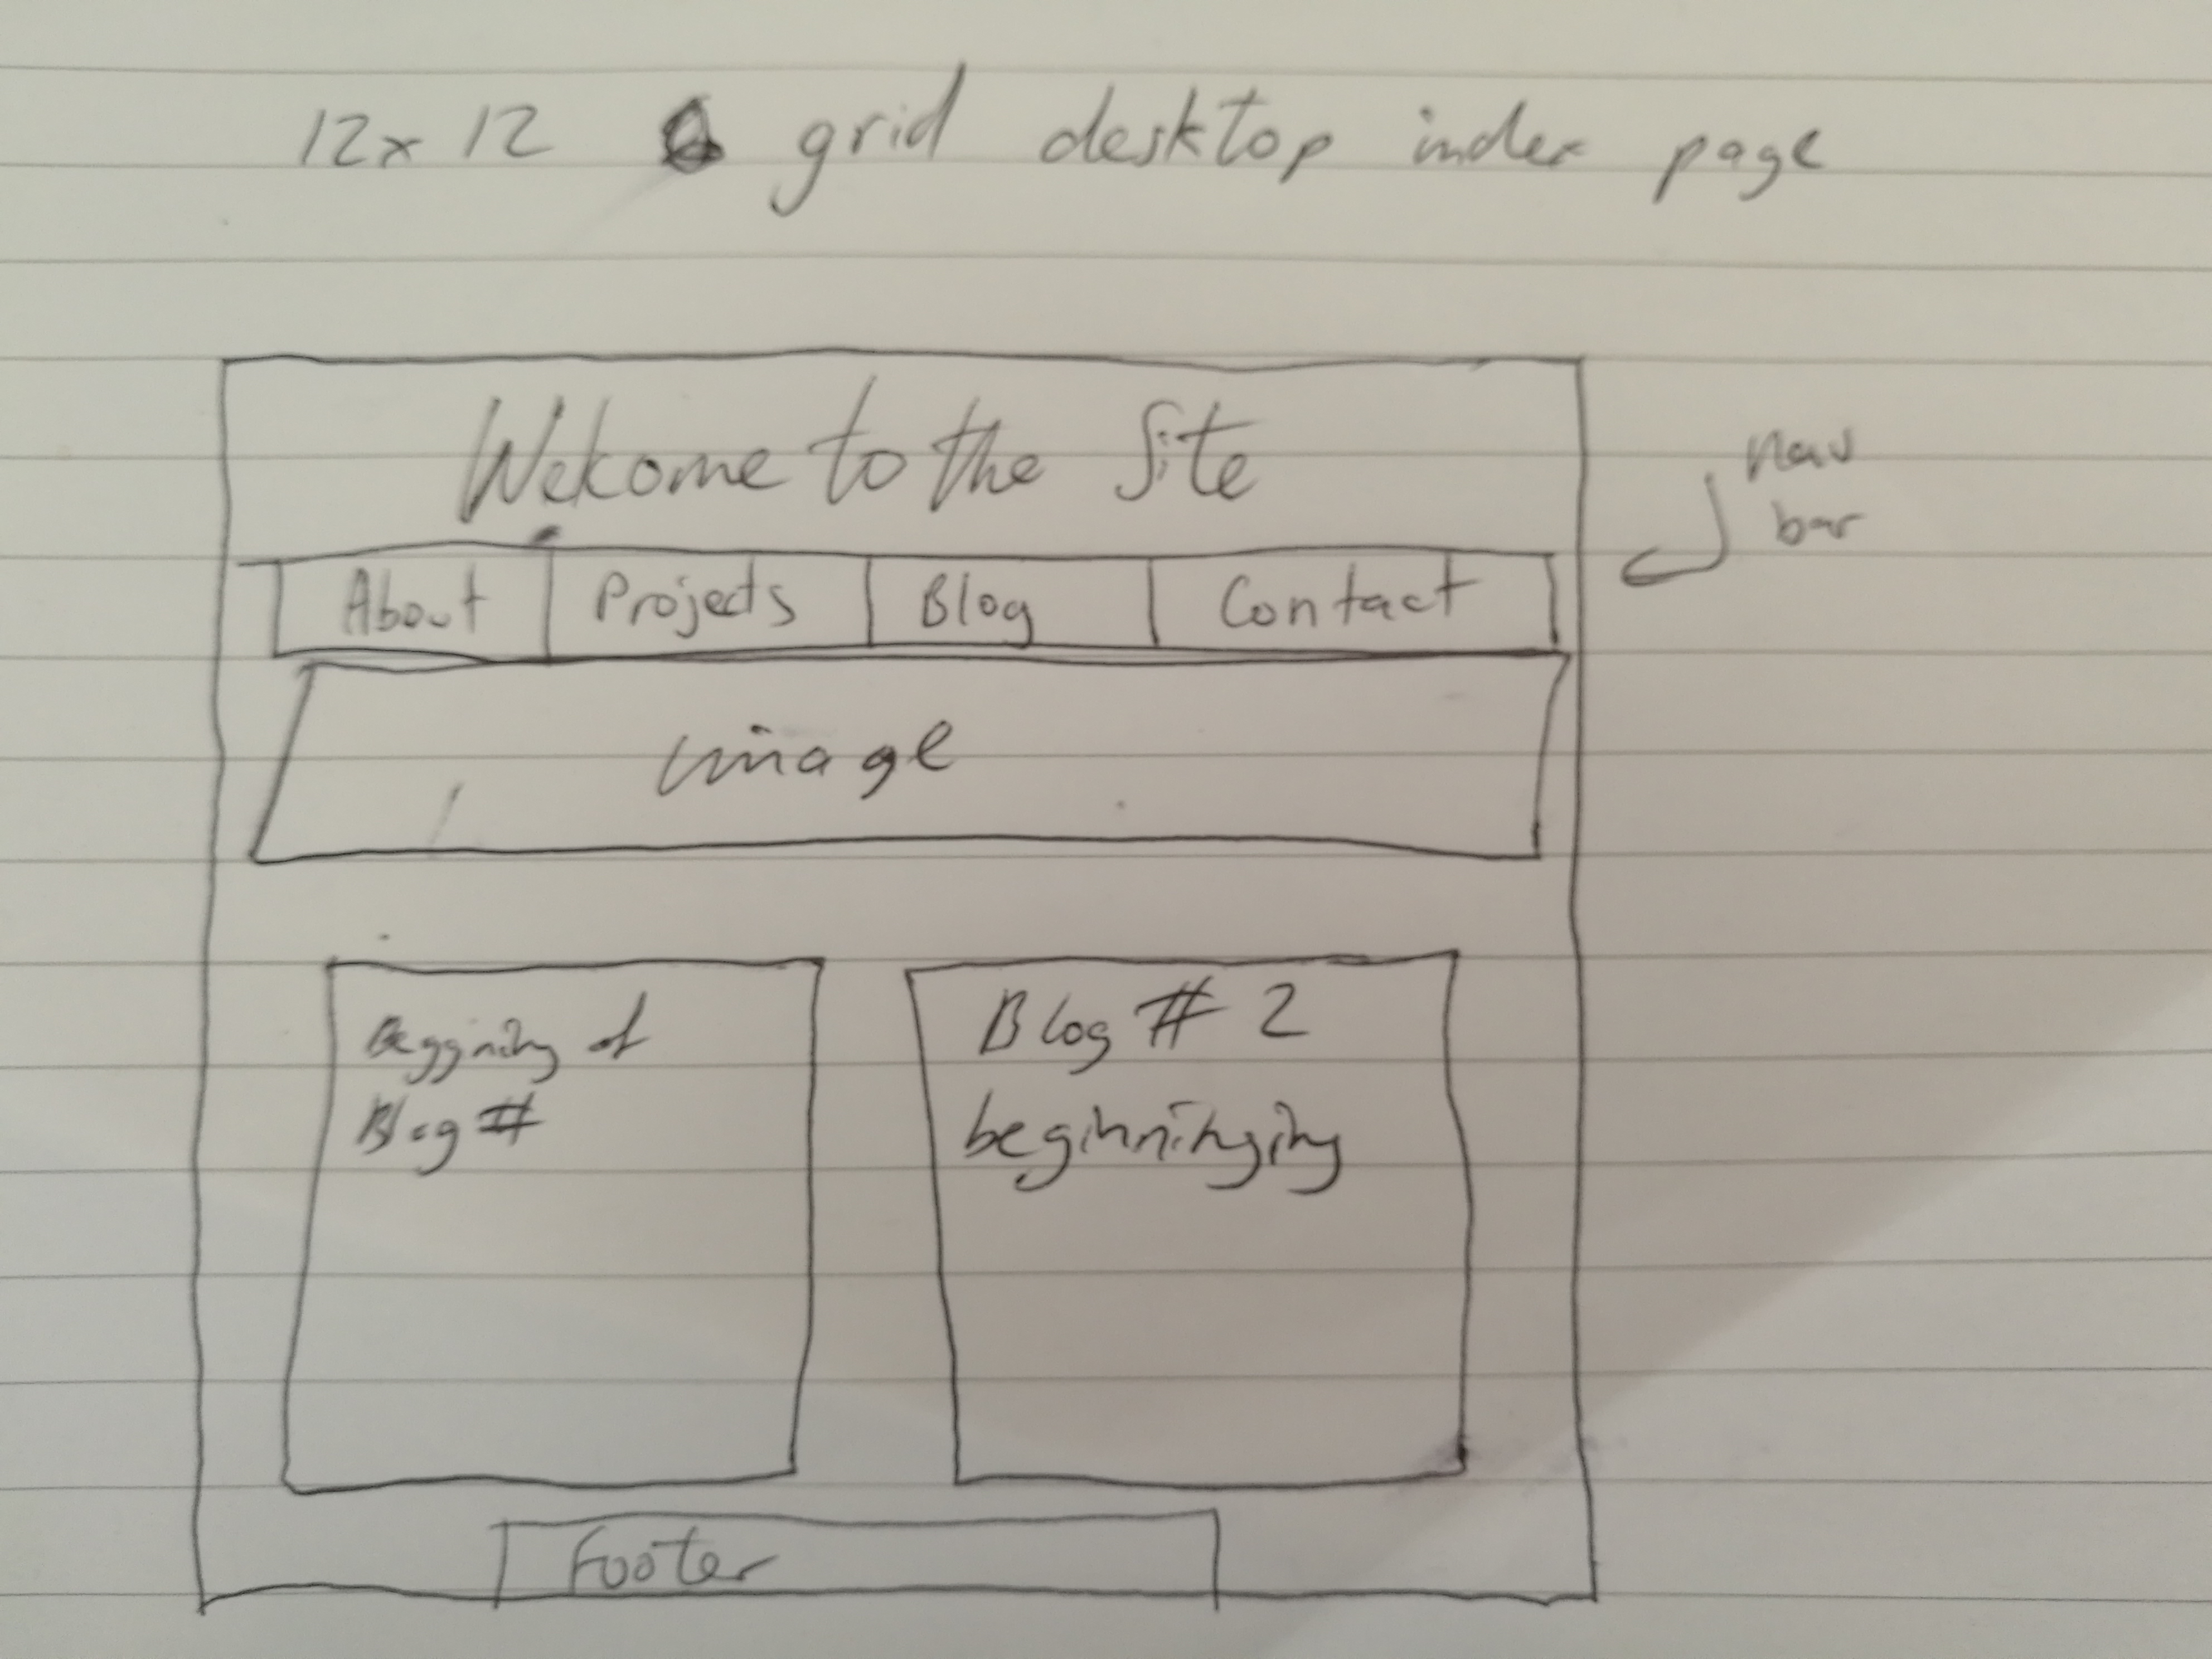 12x12 grid desktop index page
Welcome to the Site
nav
bar
About Projects Blog Contact
image
Beggining of
Blog #
Blog # 2
beginninging
Footer